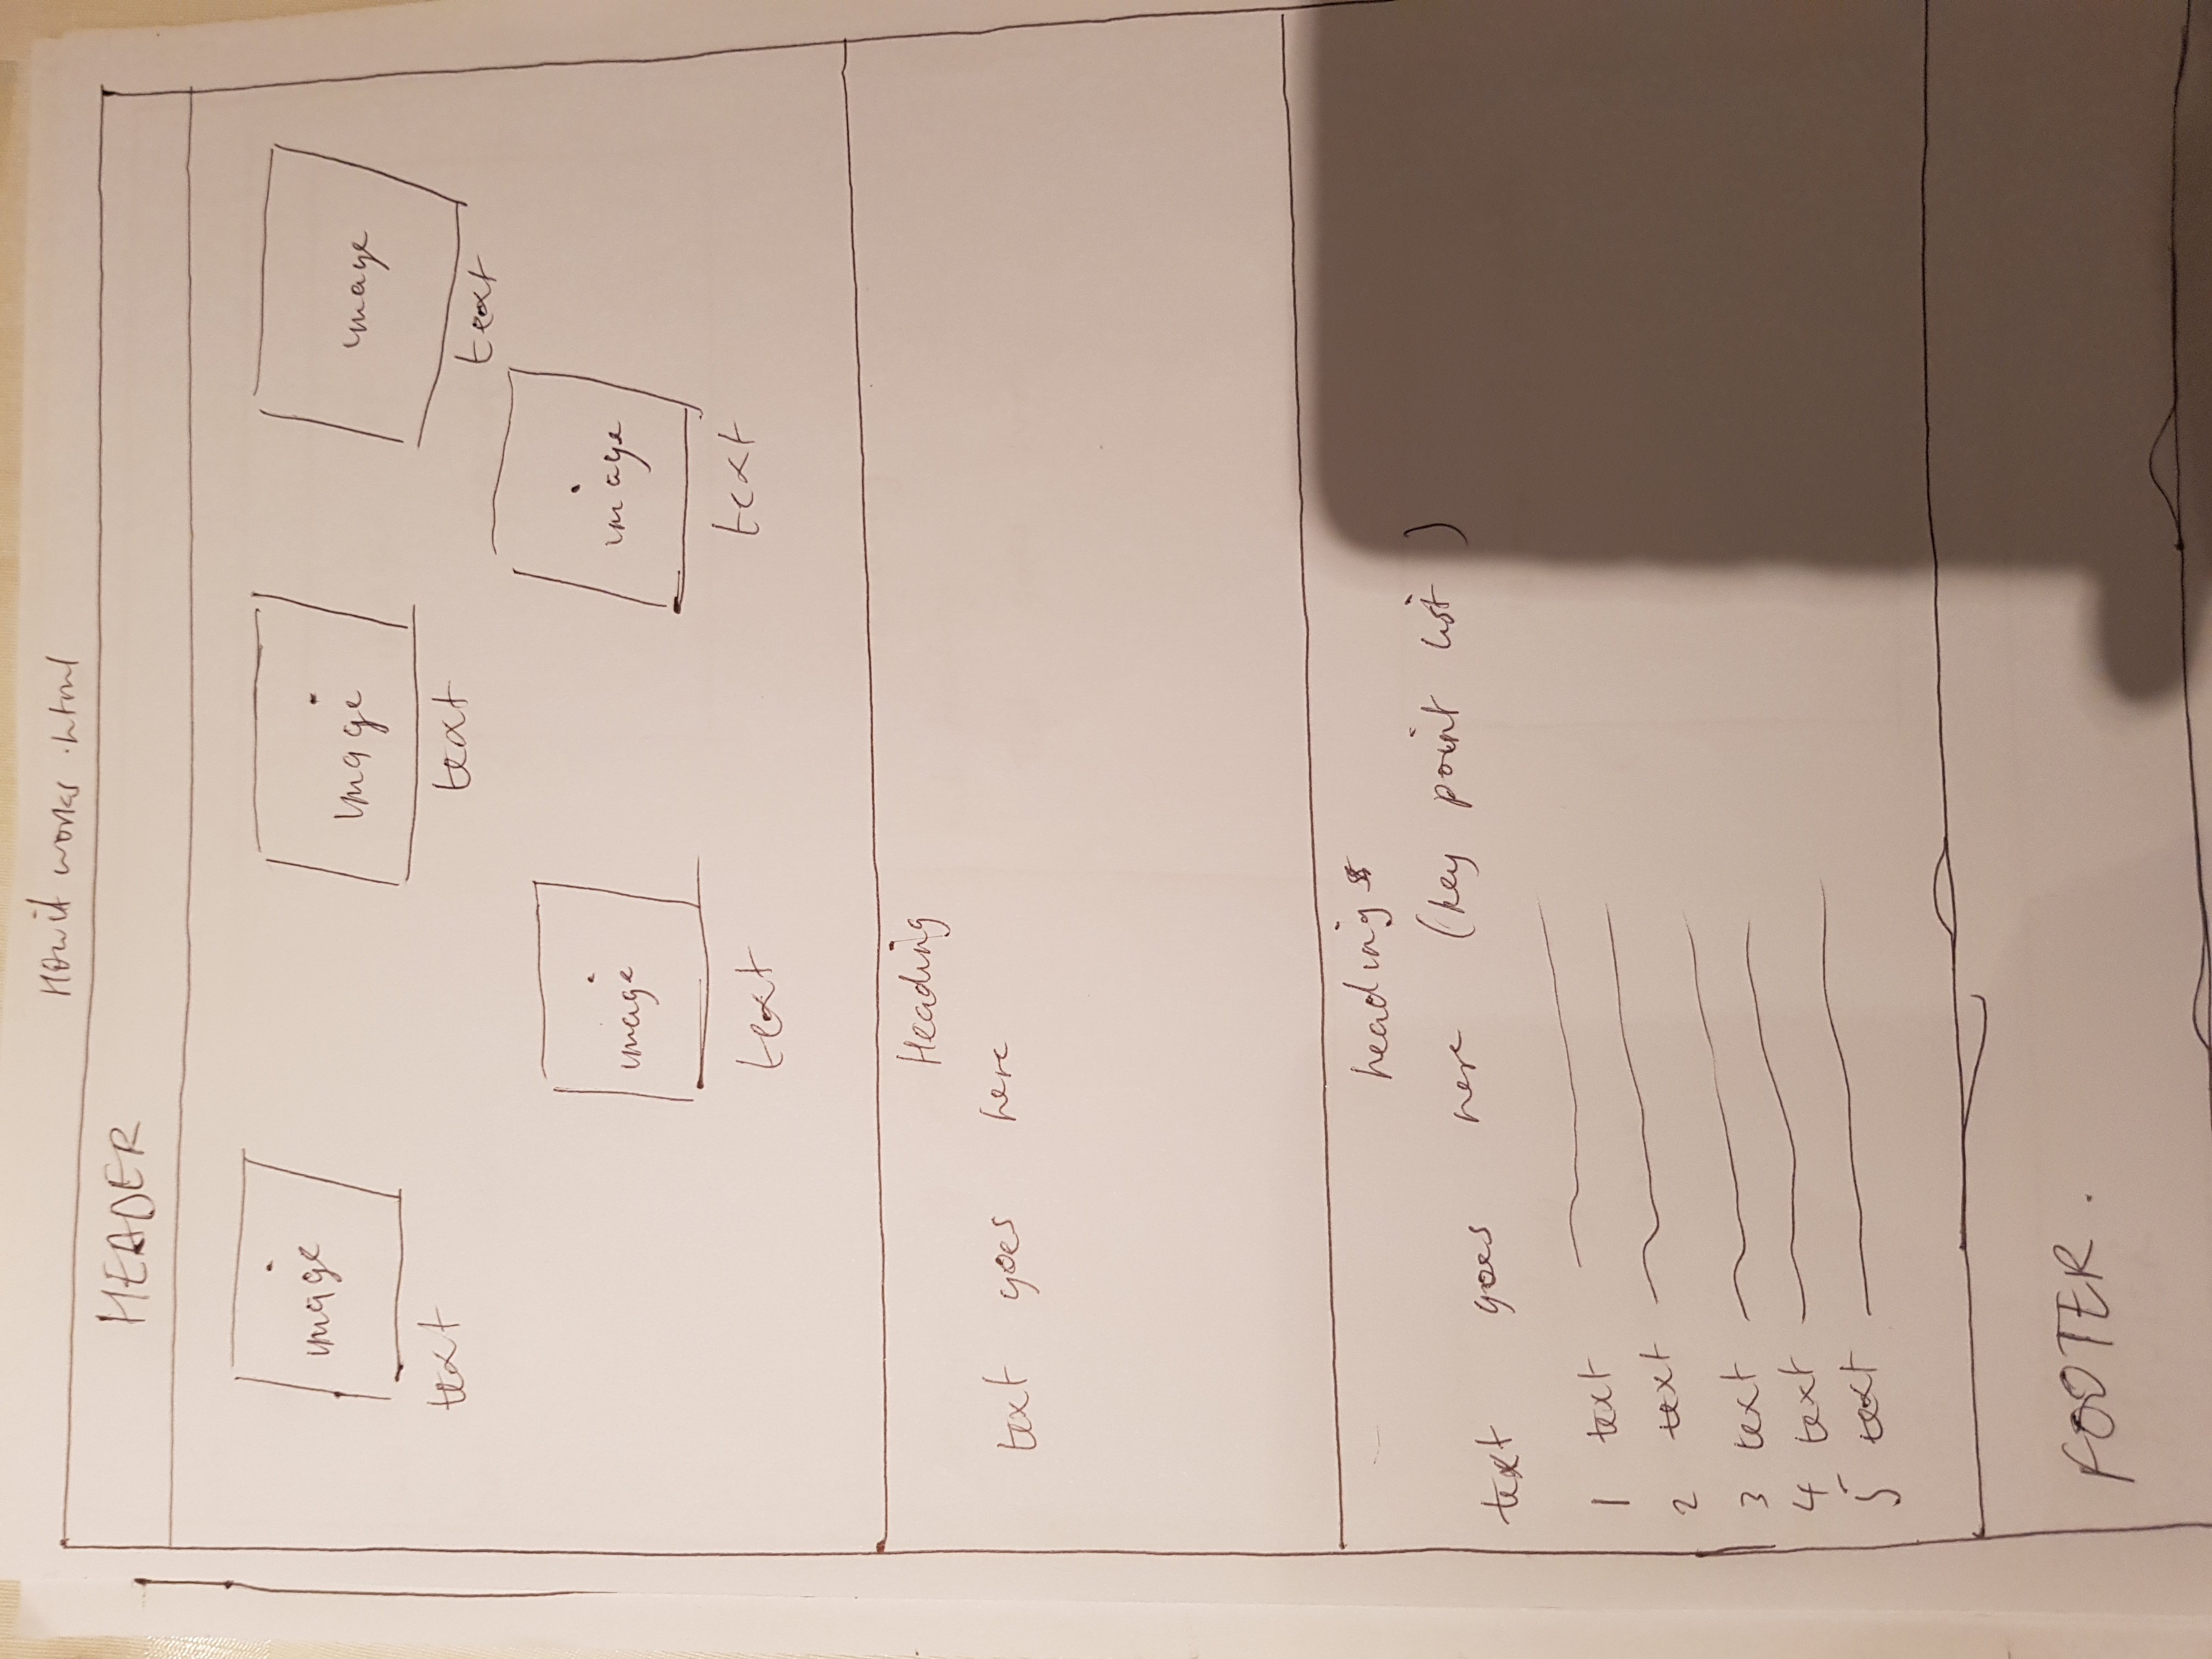 How it works .html
HEADER
image image image
text text text
image image
text text
Heading
text goes here
heading
text goes here (key point list)
1 text
2 text
3 text
4 text
5 text
FOOTER.